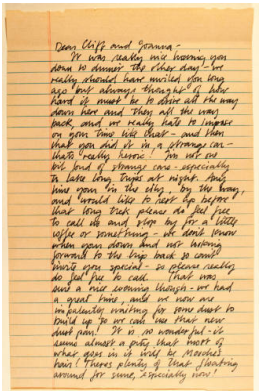 Dear Cliff and Joanna -
It was really nice having you
down to dinner the other day - we
really should have invited you long
ago but always thought of how
hard it must be to drive all the way
down here and then all the way
back, and we really hate to impose
on your time like that - and then
that you did it in a strange car -
thats really heroic! I'm not one
bit fond of strange cars - especially
to take long trips at night. Any
time your in the city, by the way,
and would like to rest up before
that long trek please do feel free
to call us and stop by for a little
coffee or something - we don't know
when your down and not looking
forward to the trip back so cant
invite you special - so please really
do feel free to call. That was
sure a nice evening though - we had
a great time, and we now are
impatiently waiting for some dust to
build up so we can use that new
dust pan! It is so wonderful - it
seems almost a pity that most of
what goes in it will be
hair! Theres plenty of that floating
around for sure, especially now!